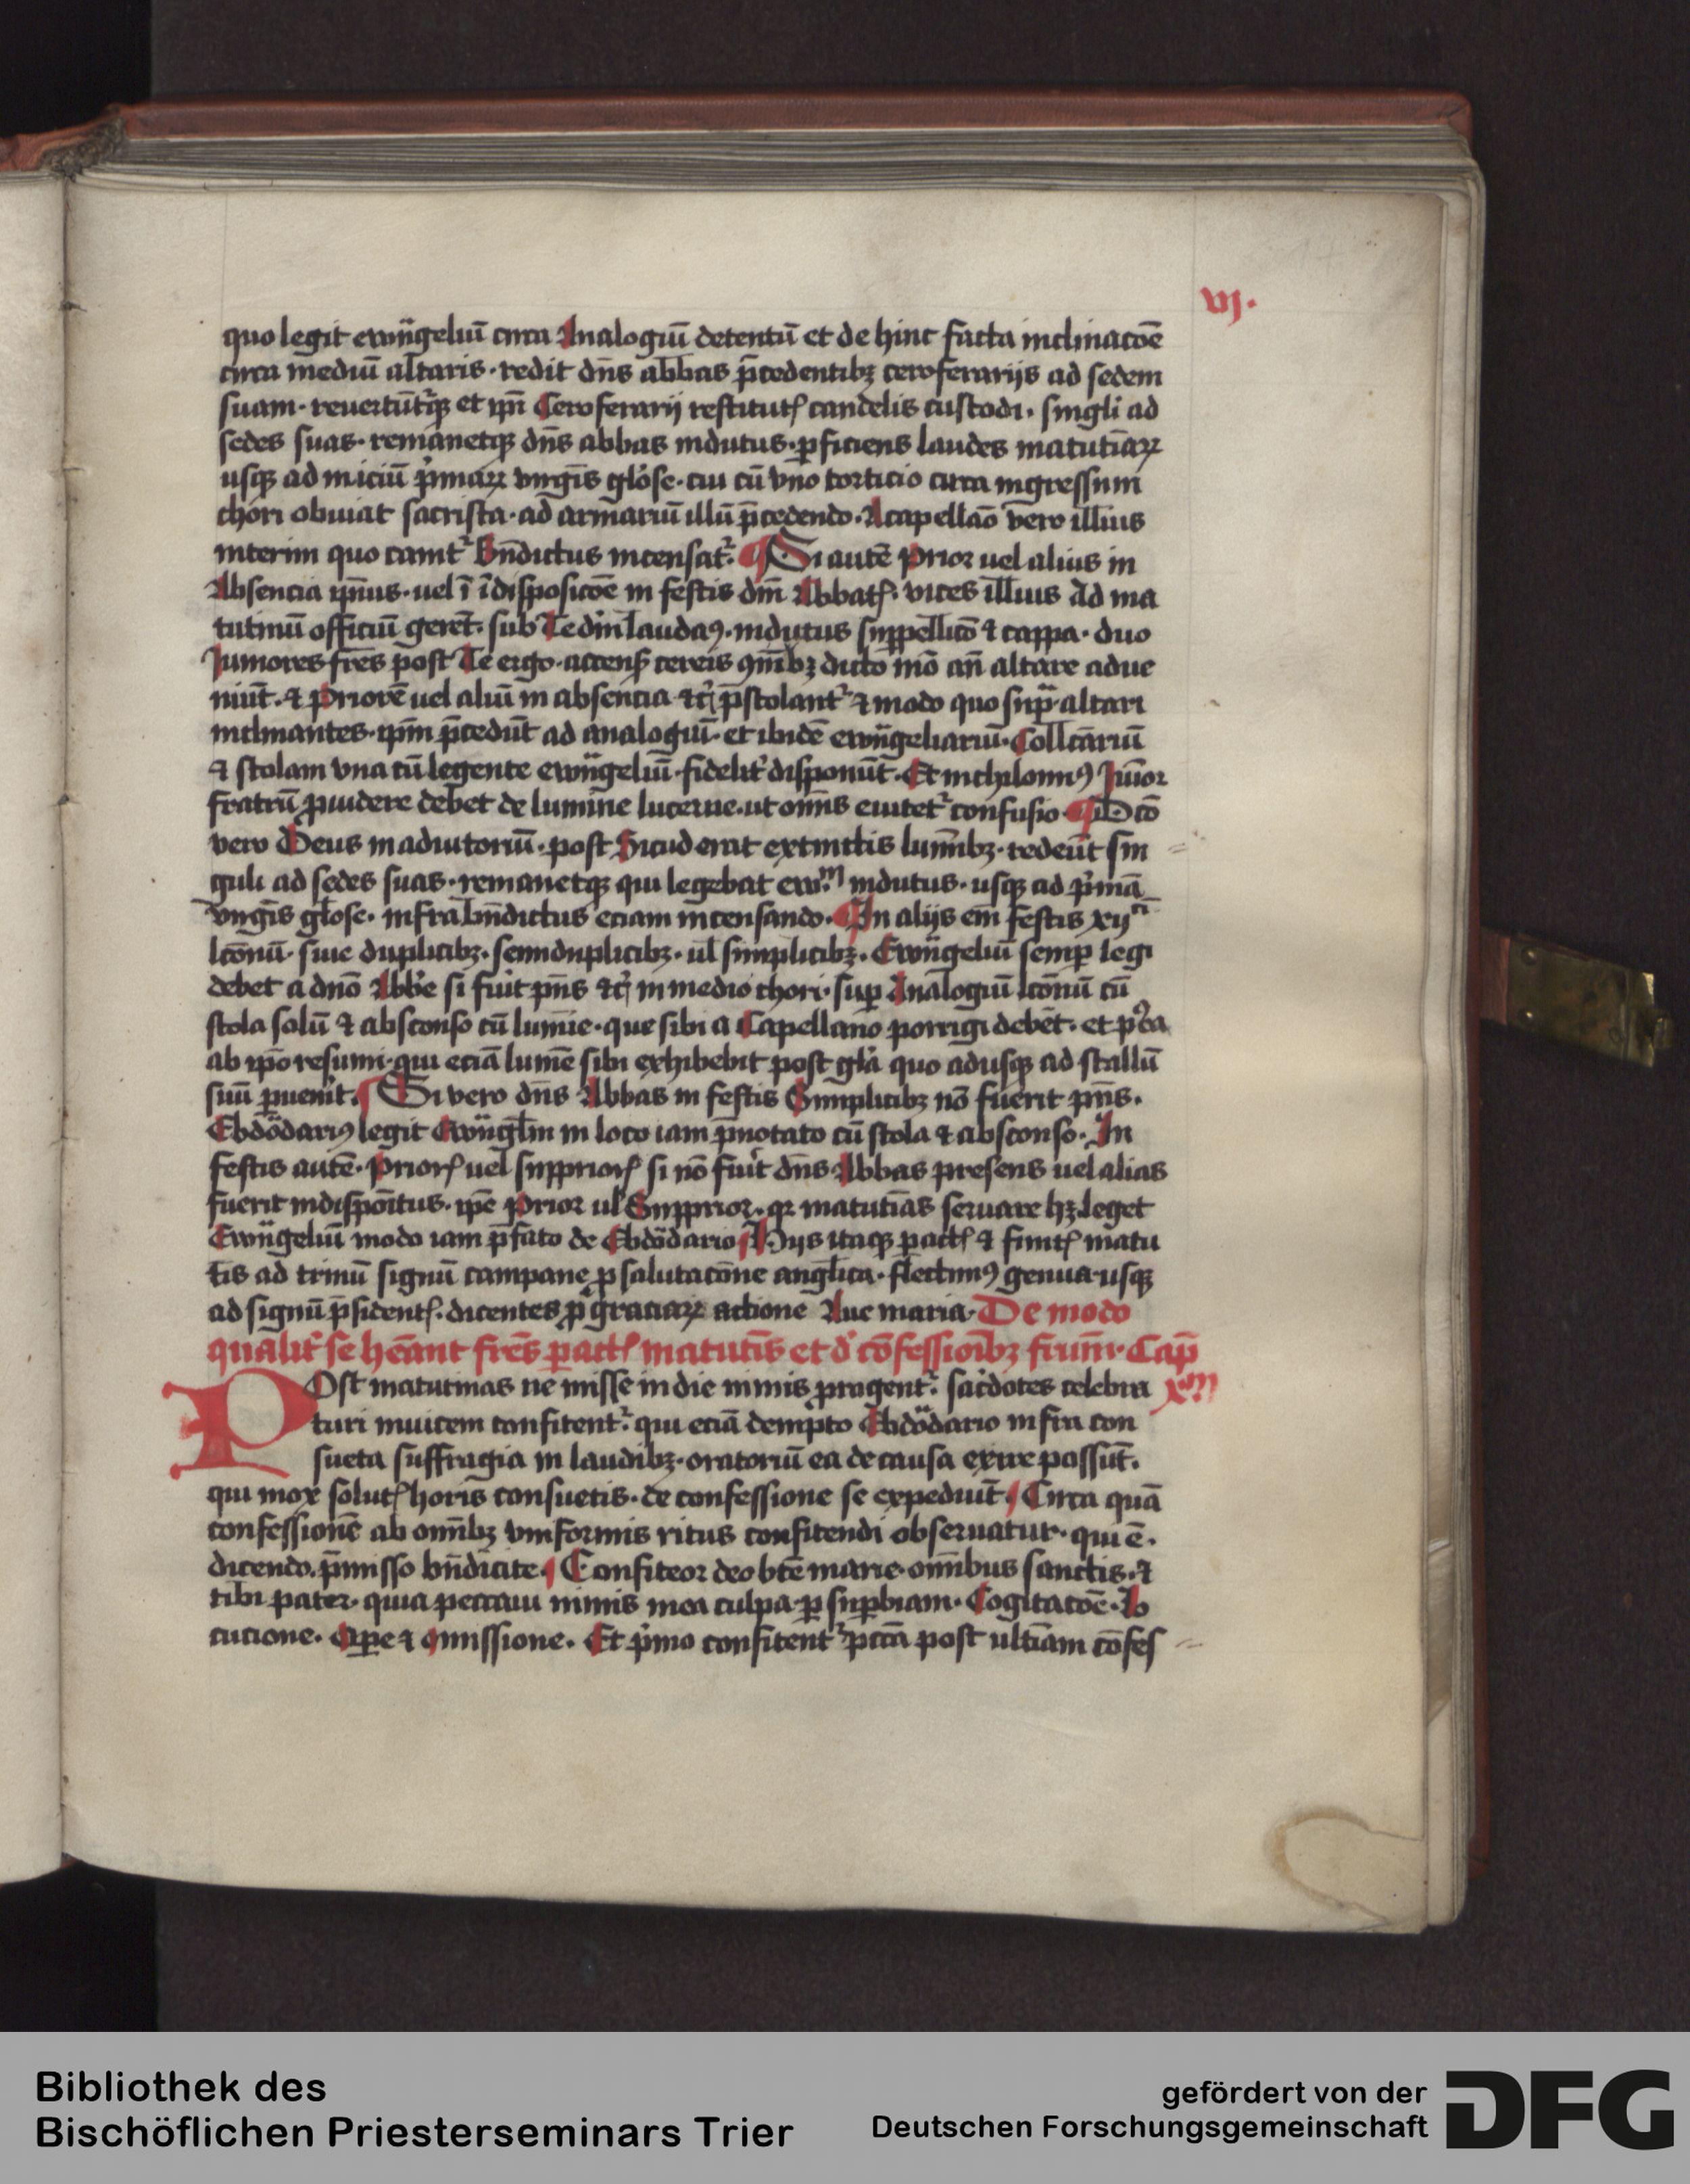 vj.
quo legit ewãgeliũ circa Analogiũ detentũ et de hinc facta inclinacoẽ
circa mediũ altaris · redit dñs abbas p̃cedentibꝫ ceroferarijs ad sedem
suam · reuertũtᷣqꝫ et ip̃i Ceroferarij restitutꝭ candelis custodi · singĺi ad
sedes suas · remanetqꝫ dñs abbas indutus · ꝑficiens laudes matutĩaꝝ
usqꝫ ad iniciũ p̓maꝝ virgĩs gl̓ose · cui cũ vno torticio circa ingressum
chori obuiat sacrista · ad armariũ illũ p̃cedendo · A capellaõ vero illius
interim quo canitᷣ Bñdictus incensatᷣ · ¶ Si autẽ Prior uel alius in
Absencia ip̃ius · uel ĩ ĩdisposicoẽ in festis dñi Abbatꝭ · vices illius Ad ma
tutinũ officiũ geret̃ · sub Te dm̃ laudaꝰ · indutus suppellicõ ⁊ cappa · duo
Juniores fr̃es post Te ergo · accensꝭ cereis ꝯmũbꝫ dicto mõ añ altare adue
niũt · ⁊ Priorẽ uel aliũ in absencia ⁊cͥ p̃stolantᷣ ⁊ modo quo supᷓ altari
inclinantes · ip̃m p̃cedũt ad analogiũ · et ibidẽ ewãgeliariũ · Collc̃ariũ
⁊ stolam vna cũ legente ewãgeliũ fidelit̓ disponũt · Et nichilominꝰ Juĩor
fratrũ ꝓuidere debet de lumine lucerne · ut om̃is euitetᷣ confusio · ¶ Dc̃o
vero Deus in adiutoriũ · post Sicud erat extinctis lumĩbꝫ · redeũt sin
guli ad sedes suas · remanetqꝫ qui legebat ewᵐ indutus · usqꝫ ad p̓mã
virgĩs gl̓ose · infra bñdictus eciam incensando · ¶ In alijs em̃ festis xij
lc̃onũ · siue duplicibꝫ · semiduplicibꝫ · ul̓ simplicibꝫ · Ewãgeliũ semꝑ legi
debet a dnõ Abb̓e si fuit̓ pñs ⁊cͥ in medio chori · suꝑ Analogiũ lc̃onũ cũ
stola solũ ⁊ absconso cũ lumĩe · que sibi a Capellano porrigi debet̃ · et pᵒc̃a
ab ip̃o resumi · qui eciã lumẽ sibi exhibebit post gl̓a quo adusqꝫ ad stallũ
suũ ꝑuenit̓ · ¶ Si vero dñs Abbas in festis Simplicibꝫ nõ fuerit pñs ·
Ebdõdariꝰ legit Ewãgl̃m in loco iam p̃notato cũ stola ⁊ absconso · In
festis autẽ · Priorꝭ uel suppriorꝭ si nõ fuit̓ dñs Abbas presens uel alias
fuerit indispoĩtus · ip̃e Prior ul̓ Supprior · qͥ matutĩas seruare hꝫ leget
Ewãgeliũ modo iam p̃fato de Ebdõdario ¶ Hijs itaqꝫ ꝑactꝭ ⁊ finitꝭ matu
tĩs ad trinũ signũ campane ꝓ salutac̃one angl̃ica · flectimꝰ genua usqꝫ
ad signũ p̃sidentꝭ · dicentes ꝓ graciaꝝ actione Aue maria · De modo
qualit̓ se heãnt fr̃es ꝑactꝭ matutĩs et d̓ cõfessioĩbꝫ fr̃um · Cap̃
xᵐ
Post matutinas ne misse in die nimis ꝓtragentᷣ · sac̓dotes celebra
turi inuicem confitentᷣ · qui eciã dempto Ebdõdario infra con
sueta suffragia in laudibꝫ · oratoriũ ea de causa exire possũt ·
qui mox solutꝭ horis consuetis · de confessione se expediũt ¶ Circa quã
confessionẽ ab om̃ibꝫ vniformis ritus confitendi obseruatur · qui ẽ ·
dicendo · p̃misso bñdicite ¶ Confiteor deo bt̃e marie om̃ibus sanctis · ⁊
tibi pater · quia peccaui nimis mea culpa ꝑ suꝑbiam · Cogitacoẽ · Lo
cucione · Oꝑe ⁊ Omissione · Et p̓mo confitentᷣ pctã post ultĩam cõfes
Bibliothek des
Bischöflichen Priesterseminars Trier
gefördert von der
Deutschen Forschungsgemeinschaft
DFG